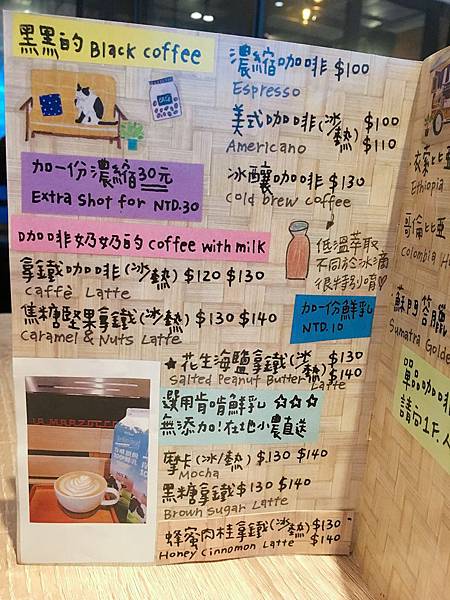 黑黑的 Black coffee
加一份濃縮30元
Extra shot for NTD.30
咖啡奶奶的 coffee with milk
拿鐵咖啡(冰/熱) $120 $130
Caffè Latte
焦糖堅果拿鐵(冰/熱) $130 $140
Caramel & Nuts Latte
濃縮咖啡 $100
Espresso
美式咖啡(冰/熱) $100 $110
Americano
冰釀咖啡 $130
Cold brew coffee
低溫萃取
不同於冰滴
很特別唷♡
加一份鮮乳
NTD.10
★花生海鹽拿鐵(冰/熱) $130 $140
Salted Peanut Butter Latte
選用肯啃鮮乳 ☆☆☆
無添加!在地小農直送
摩卡(冰/熱) $130 $140
Mocha
黑糖拿鐵 $130 $140
Brown Sugar Latte
蜂蜜肉桂拿鐵(冰/熱) $130 $140
Honey Cinnomon Latte
LA MARZOCCO
衣索比亞
Ethiopia
哥倫比亞
Colombia
蘇門答臘
Sumatra Golde
單品咖啡
請向1F.